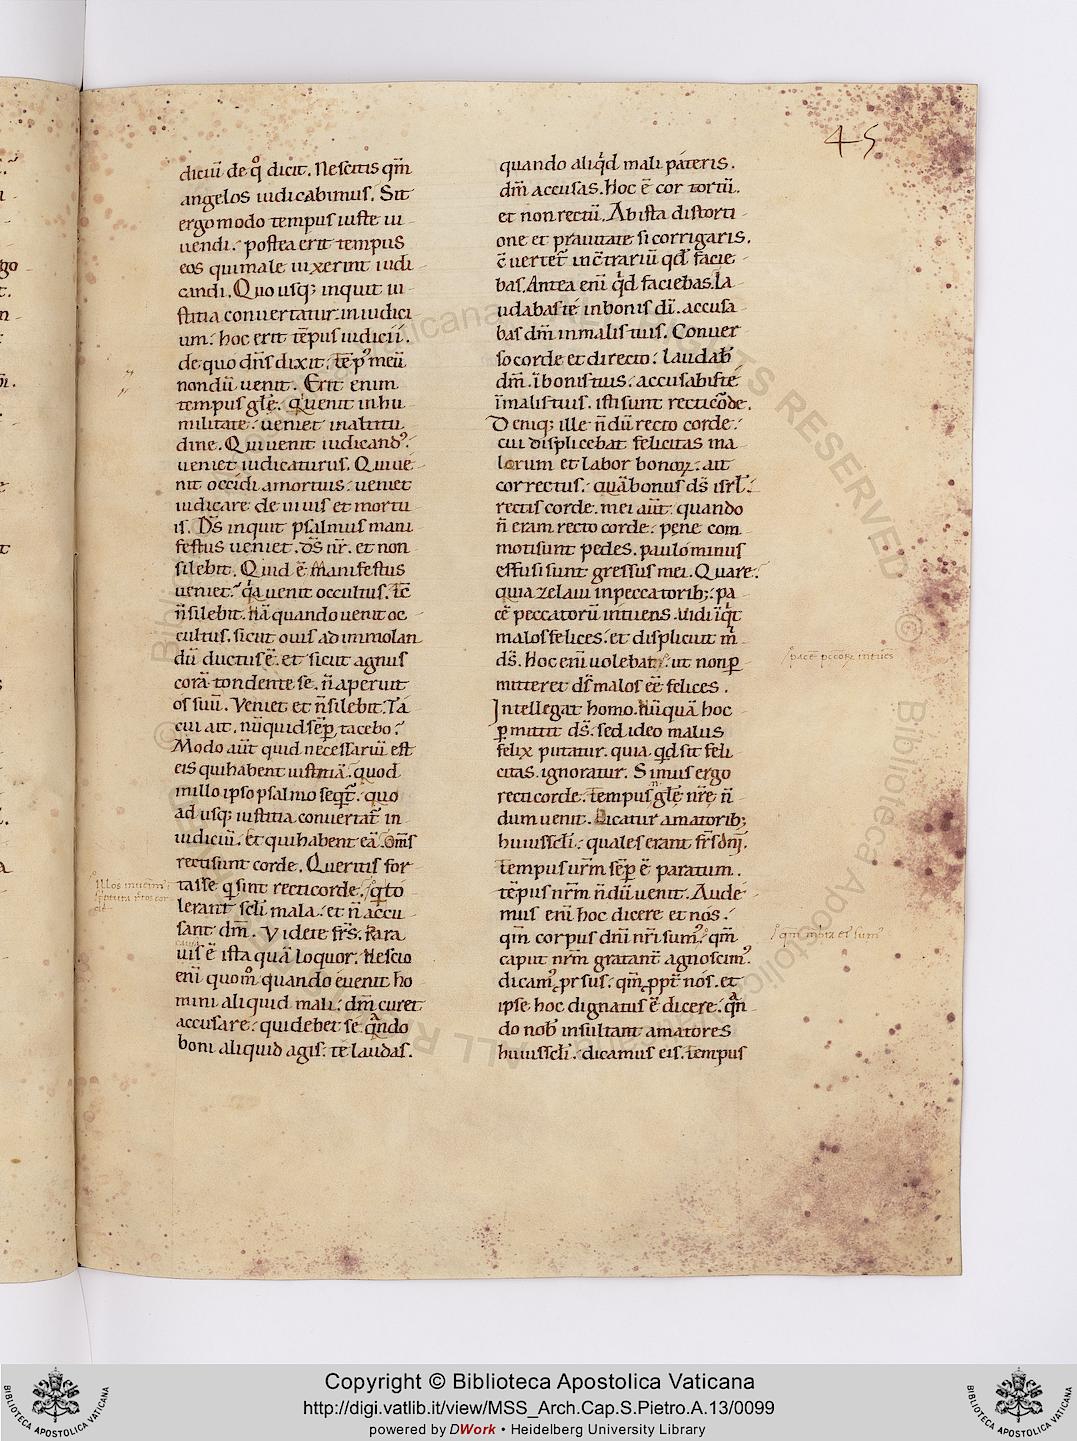 45
diciū de qͦ dicit. Nescitis qm̄
angelos iudicabimus. Sit
ergo modo tempus iuste ui
uendi. postea erit tempus
eos qui male uixerint iudi
candi. Quo usq; inquit iu
stitia conuertatur in iudici
um. hoc erit tēpus iudicii.
de quo dn̄s dixit. tēpꝰ meū
nondū uenit. Erit enim
tempus glē. q̇ uenit in hu
militate. ueniet in altitu
dine. Qui uenit iudicandꝰ.
ueniet iudicaturus. Qui ue
nit occidi a mortuis. ueniet
iudicare de uiuis et mortu
is. Ds̄ inquit psalmus mani
festus ueniet. ds̄ nr̄. et non
silebit. Quid ē manifestus
ueniet. q̇a uenit occultus. tc̄
n̄ silebit. nā quando uenit oc
cultus. sicut ouis ad immolan
dū ductus ē. et sicut agnus
corā tondente se. n̄ aperuit
os suū. Veniet et n̄ silebit. Ta
cui ait. nūquid sēꝑ tacebo.
Modo aūt quid necessariū est
eis qui habent iustitiā. quod
in illo ipso psalmo seqt̄. quo
ad usq; iustitia conuertat̄ in
iudiciū. Et qui habent eā. om̄s
recti sunt corde. Queritis for
tasse q̇ sint recti corde. q̇ to
lerant scli mala. et n̄ accu
sant dm̄. Videte frs̄. Rara
uis ē ista quā loquor. Nescio
eni quomͦ quando euenit ho
mini aliquid mali. dm̄ curet
accusare. qui debet se. qn̄do
boni aliquid agis. te laudas.
quando aliqͥd mali pateris.
dm̄ accusas. Hoc ē cor tortū.
et non rectū. Ab ista distorti
one et prauitate si corrigaris.
c̄uertet̄ in c̄trariū qd̄ facie
bas. Antea eni qͥd faciebas. La
udabas te in bonis di. accusa
bas dm̄ in malis tuis. Conuer
so corde et directo. laudab̄
dm̄. ī bonis tuis. accusabis te
ī malis tuis. isti sunt recti cōde.
Deniq; ille n̄dū recto corde.
cui displicebat felicitas ma
lorum et labor bonoꝝ. ait
correctus. quā bonus ds̄ isrl̄.
rectis corde. mei aūt. quando
n̄ eram recto corde. pene com
moti sunt pedes. paulominus
effusi sunt gressus mei. Quare.
quia zelaui in peccatorib;. pa
cē peccatorū intuens. Vidi īqͥt
malos felices. et displicuit m̄
ds̄. Hoc eni uolebat. ut non ꝑ
mitteret ds̄ malos eē felices.
Intellegat homo. Nūquā hoc
ꝑmittit ds̄. sed ideo malus
felix putatur. quia qd sit feli
citas. ignoratur. Simus ergo
recti corde. tempus glē nrē n̄
dum uenit. Dicatur amatorib;
huius scli. quales erant frs̄ dnī.
tempus urm̄ sēꝑ ē paratum.
tēpus nrm̄ n̄dū uenit. Aude
mus eni hoc dicere et nos.
qm̄ corpus dni nri sumꝰ. qm̄
caput nrm̄ gratant̄ agnoscimꝰ.
dicamꝰ prsus. qm̄ ꝓpt̄ nos. et
ipse hoc dignatus ē dicere. qn̄
do nob̄ insultant amatores
huius scli. dicamus eis. tempus
pacē pccoꝝ intues
qm̄ mbra eiꝰ sumꝰ
Copyright © Biblioteca Apostolica Vaticana
http://digi.vatlib.it/view/MSS_Arch.Cap.S.Pietro.A.13/0099
powered by DWork • Heidelberg University Library